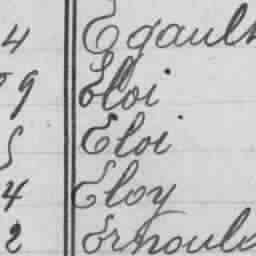 4 Egault
9 Eloi
5 Eloi
4 Eloy
2 Ernould